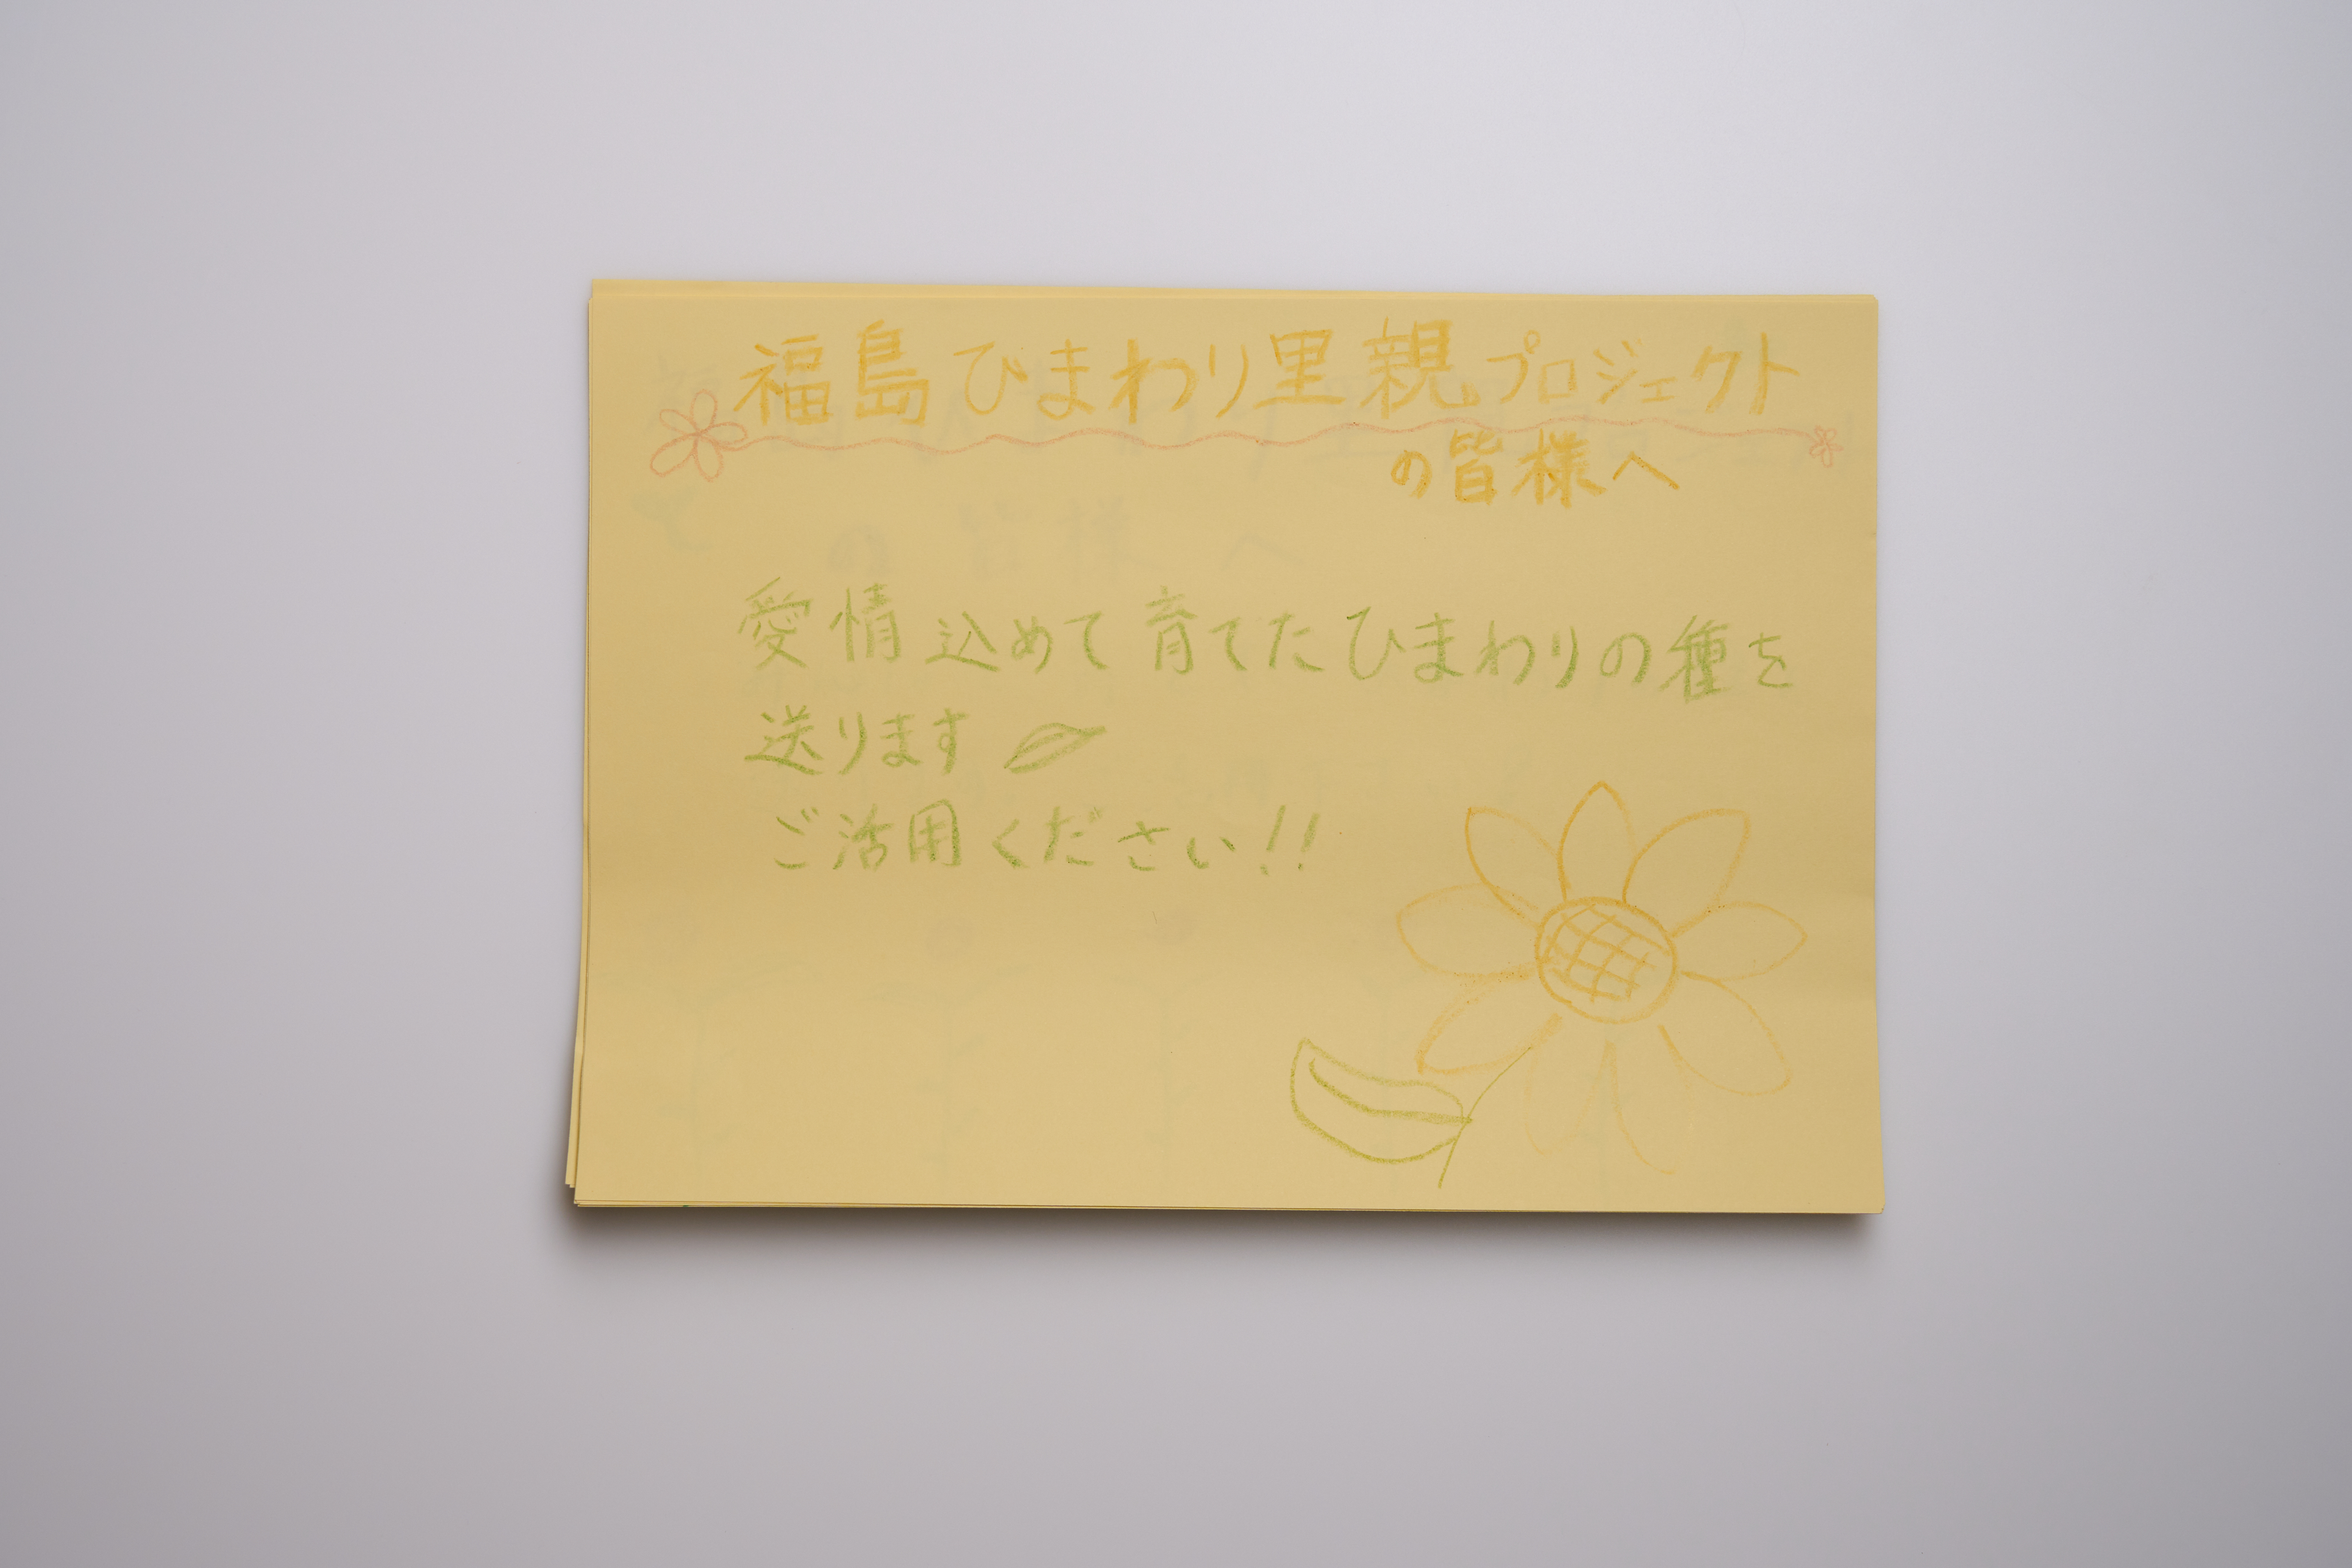 福島ひまわり里親プロジェクト
の皆様へ
愛情込めて育てたひまわりの種を
送ります
ご活用ください!!